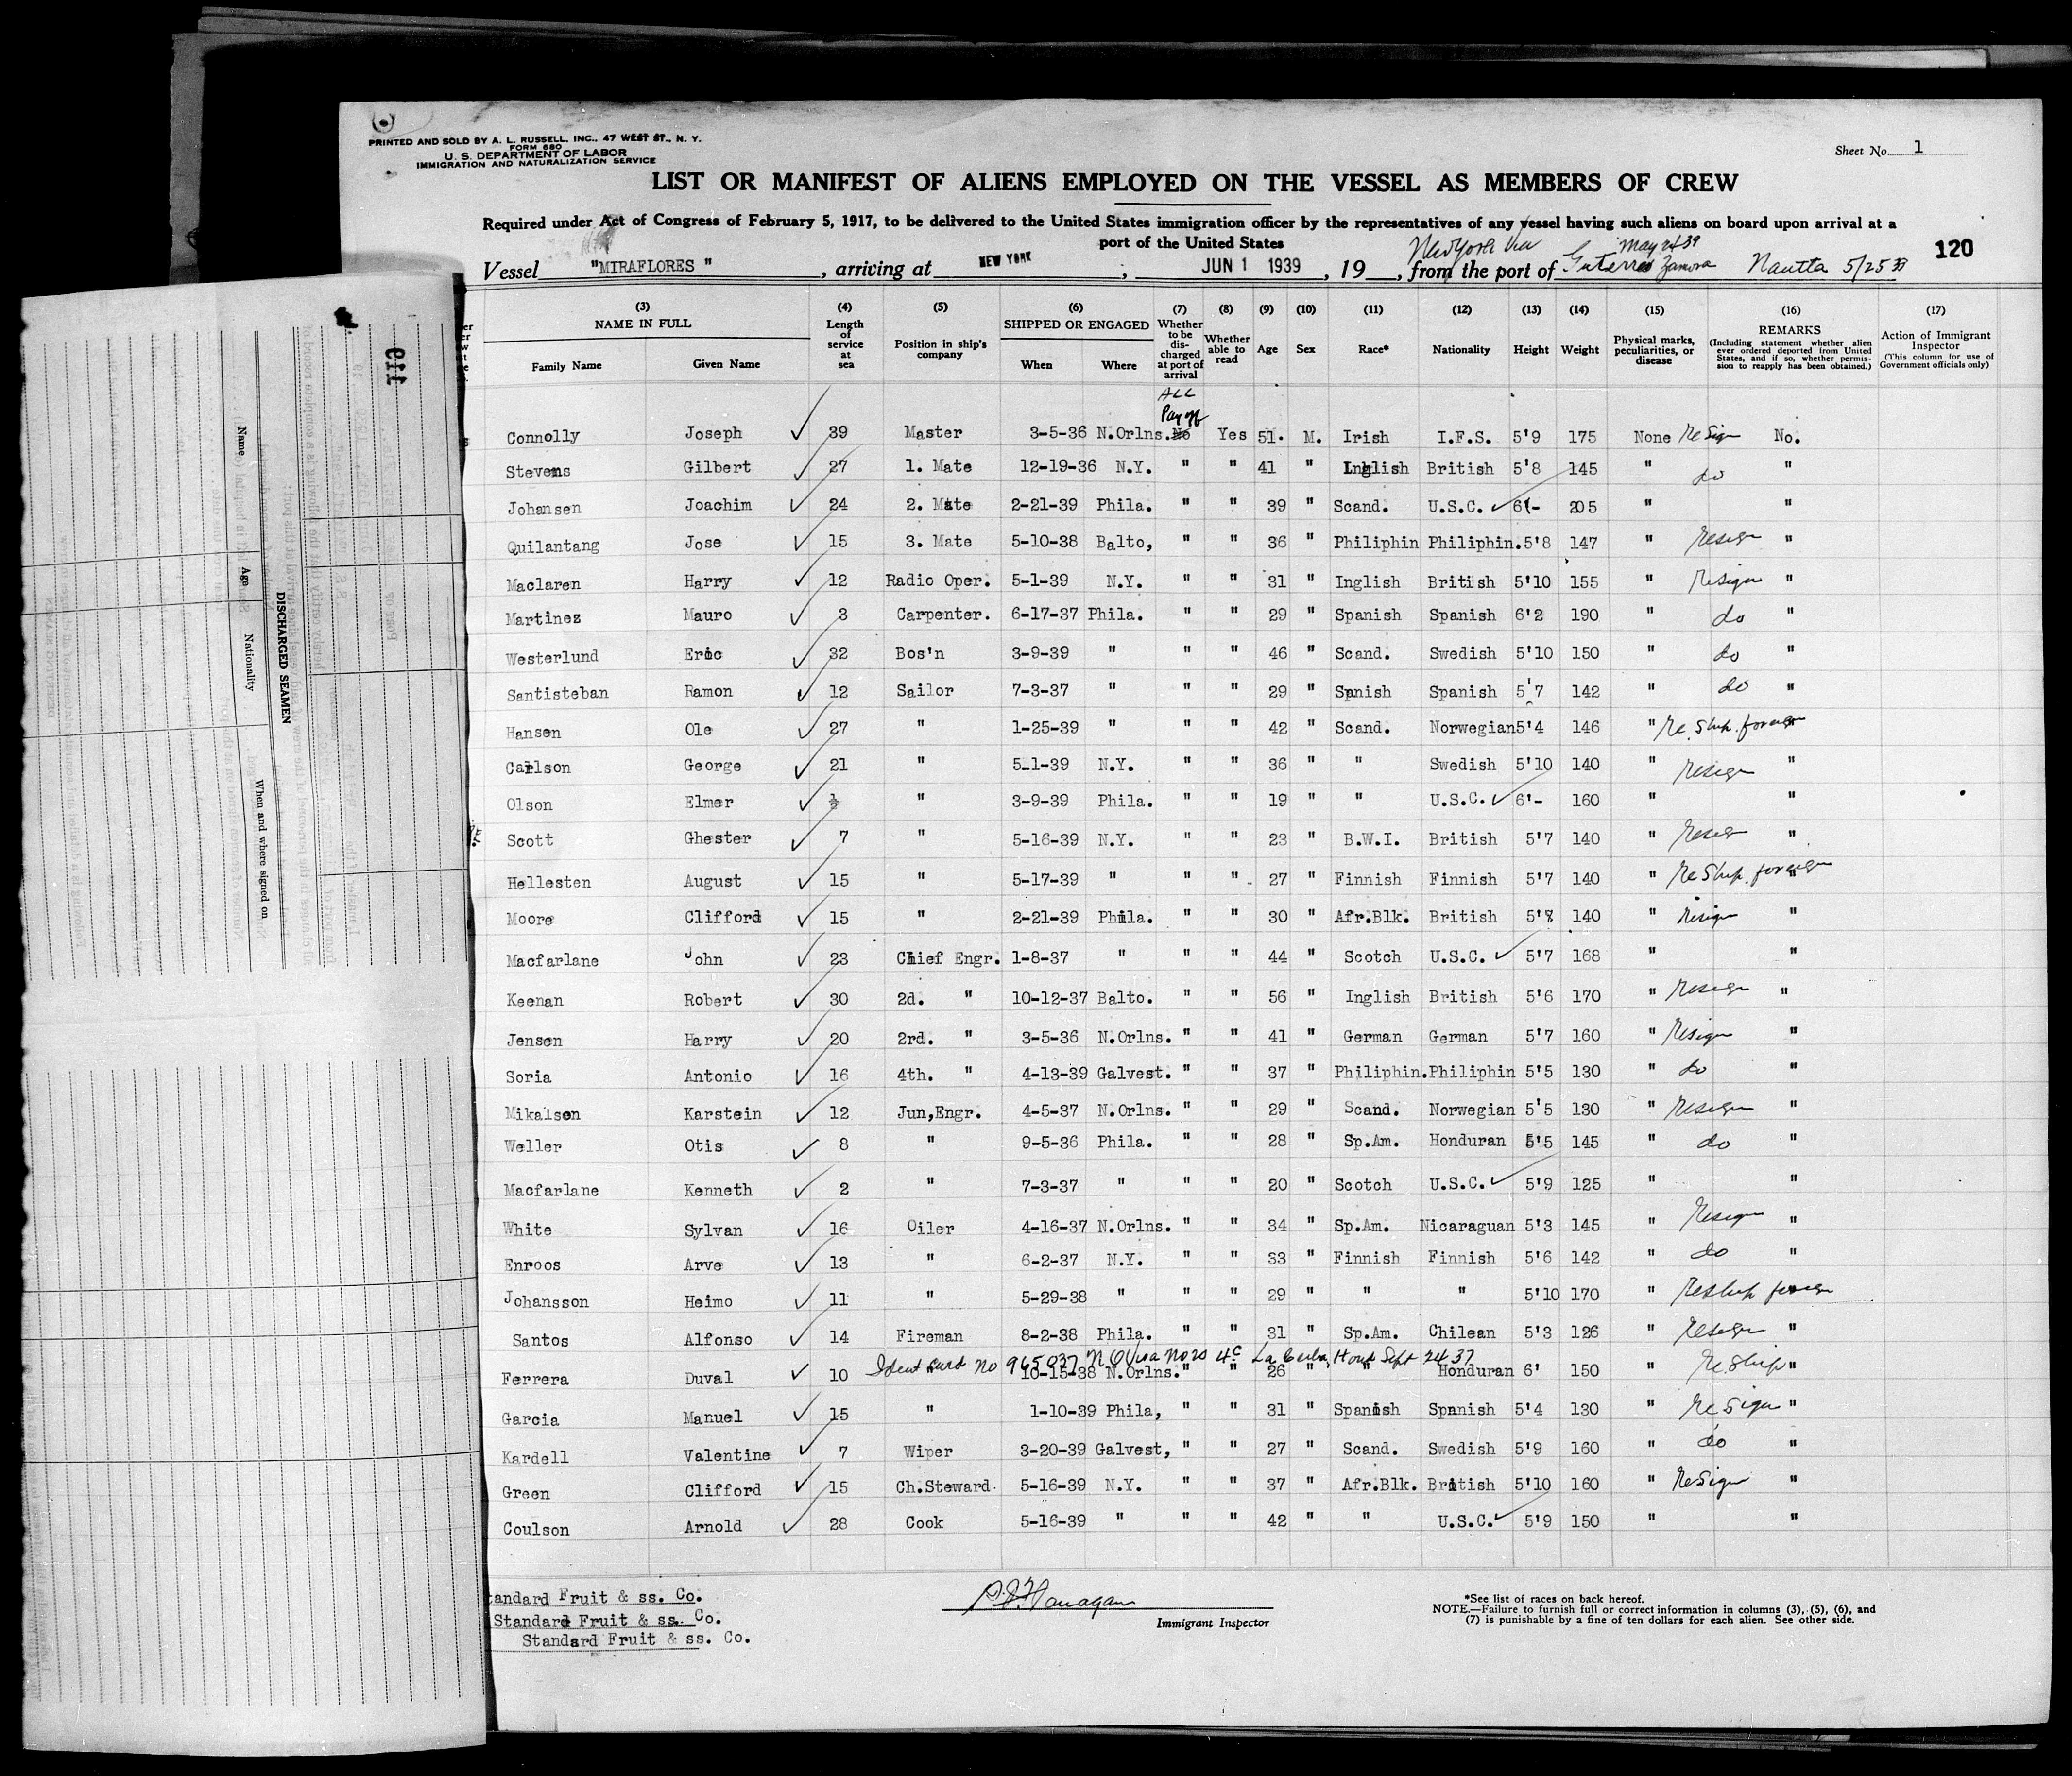 PRINTED AND SOLD BY A. L. RUSSELL, INC., 47 WEST ST., N. Y.
FORM 680
U. S. DEPARTMENT OF LABOR
IMMIGRATION AND NATURALIZATION SERVICE
Sheet No. 1
LIST OR MANIFEST OF ALIENS EMPLOYED ON THE VESSEL AS MEMBERS OF CREW
Required under Act of Congress of February 5, 1917, to be delivered to the United States immigration officer by the representatives of any vessel having such aliens on board upon arrival at a
port of the United States
New York via May 24 39
120
Vessel "MIRAFLORES", arriving at NEW YORK, JUN 1 1939, 19, from the port of Zamora Nautla 5/25
(3) (4) (5) (6) (7) (8) (9) (10) (11) (12) (13) (14) (15) (16) (17)
NAME IN FULL
Family Name Given Name
Length of service at sea
Position in ship's company
SHIPPED OR ENGAGED
When Where
Whether to be discharged at port of arrival
Whether able to read
Age Sex Race* Nationality Height Weight
Physical marks, peculiarities, or disease
REMARKS
(Including statement whether alien ever ordered deported from United States, and if so, whether permission to reapply has been obtained.)
Action of Immigrant Inspector
(This column for use of Government officials only)
ALL
Pay off
Connolly Joseph 39 Master 3-5-36 N.Orlns. No Yes 51. M. Irish I.F.S. 5'9 175 None ReSign No.
Stevens Gilbert 27 1. Mate 12-19-36 N.Y. " " 41 " Inglish British 5'8 145 " do "
Johansen Joachim 24 2. Mate 2-21-39 Phila. " " 39 " Scand. U.S.C. 6'- 205 " "
Quilantang Jose 15 3. Mate 5-10-38 Balto, " " 36 " Philiphin Philiphin. 5'8 147 " Resign "
Maclaren Harry 12 Radio Oper. 5-1-39 N.Y. " " 31 " Inglish British 5'10 155 " Resign "
Martinez Mauro 3 Carpenter. 6-17-37 Phila. " " 29 " Spanish Spanish 6'2 190 " do "
Westerlund Eric 32 Bos'n 3-9-39 " " " 46 " Scand. Swedish 5'10 150 " do "
Santisteban Ramon 12 Sailor 7-3-37 " " " 29 " Spnish Spanish 5'7 142 " do "
Hansen Ole 27 " 1-25-39 " " " 42 " Scand. Norwegian 5'4 146 " Re.Ship.foreign "
Carlson George 21 " 5-1-39 N.Y. " " 36 " " Swedish 5'10 140 " Resign "
Olson Elmer ½ " 3-9-39 Phila. " " 19 " " U.S.C. 6'- 160 " "
Scott Ghester 7 " 5-16-39 N.Y. " " 23 " B.W.I. British 5'7 140 " Resign "
Hellesten August 15 " 5-17-39 " " " 27 " Finnish Finnish 5'7 140 " ReShip.foreign "
Moore Clifford 15 " 2-21-39 Phila. " " 30 " Afr.Blk. British 5'7 140 " Resign "
Macfarlane John 23 Chief Engr. 1-8-37 " " " 44 " Scotch U.S.C. 5'7 168 " "
Keenan Robert 30 2d. " 10-12-37 Balto. " " 56 " Inglish British 5'6 170 " Resign "
Jensen Harry 20 2rd. " 3-5-36 N.Orlns. " " 41 " German German 5'7 160 " Resign "
Soria Antonio 16 4th. " 4-13-39 Galvest. " " 37 " Philiphin. Philiphin 5'5 130 " do "
Mikalsen Karstein 12 Jun,Engr. 4-5-37 N.Orlns. " " 29 " Scand. Norwegian 5'5 130 " Resign "
Weller Otis 8 " 9-5-36 Phila. " " 28 " Sp.Am. Honduran 5'5 145 " do "
Macfarlane Kenneth 2 " 7-3-37 " " " 20 " Scotch U.S.C. 5'9 125 " "
White Sylvan 16 Oiler 4-16-37 N.Orlns. " " 34 " Sp.Am. Nicaraguan 5'3 145 " Resign "
Enroos Arve 13 " 6-2-37 N.Y. " " 33 " Finnish Finnish 5'6 142 " do "
Johansson Heimo 11 " 5-29-38 " " " 29 " " " 5'10 170 " Reship foreign "
Santos Alfonso 14 Fireman 8-2-38 Phila. " " 31 " Sp.Am. Chilean 5'3 126 " Resign "
Ident card No 965037 Visa No 20 4c La Ceiba, Hond Sept 24 37
Ferrera Duval 10 " 10-15-38 N.Orlns. " " 26 " " Honduran 6' 150 " Re.Ship "
Garcia Manuel 15 " 1-10-39 Phila, " " 31 " Spanish Spnnish 5'4 130 " ReSign "
Kardell Valentine 7 Wiper 3-20-39 Galvest, " " 27 " Scand. Swedish 5'9 160 " do "
Green Clifford 15 Ch.Steward. 5-16-39 N.Y. " " 37 " Afr.Blk. British 5'10 160 " ReSign "
Coulson Arnold 28 Cook 5-16-39 " " " 42 " " U.S.C. 5'9 150 " "
tandard Fruit & ss. Co.
Standard Fruit & ss. Co.
Standard Fruit & ss. Co.
Immigrant Inspector
*See list of races on back hereof.
NOTE.—Failure to furnish full or correct information in columns (3), (5), (6), and
(7) is punishable by a fine of ten dollars for each alien. See other side.
119
DISCHARGED SEAMEN
Name Age Nationality When and where signed on